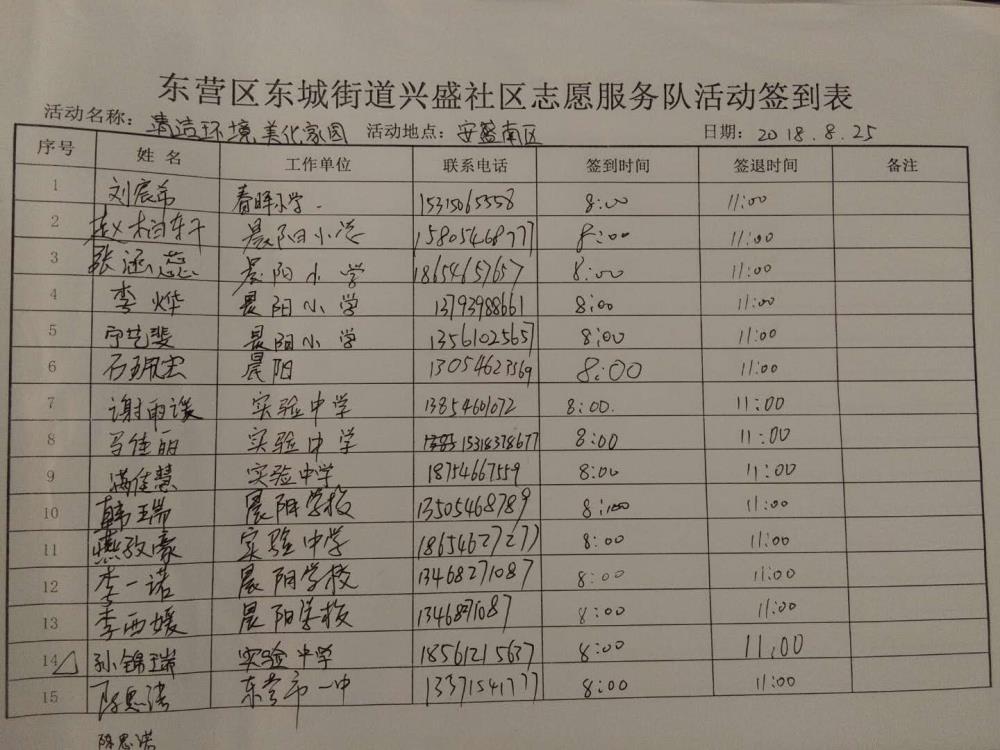 东营区东城街道兴盛社区志愿服务队活动签到表
活动名称：清洁环境,美化家园 活动地点：安盛南区 日期：2018.8.25
序号 姓名 工作单位 联系电话 签到时间 签退时间 备注
1 刘宸希 春晖小学. 15315065558 8:00 11:00
2 赵 15805468777 晨阳小学 8:00 11:00
3 张涵蕊 晨阳小学 18654657657 8:00 11:00
4 李烨 晨阳小学 13793988661 8:00 11:00
5 宁艺斐 晨阳小学 13561025657 8:00 11:00
6 石 晨阳 13054623569 8:00 11:00
7 谢雨谖 实验中学 13854601072 8:00. 11:00
8 马佳丽 实验中学 15318378677 8:00 11:00
9 满佳慧 实验中学 18754667559 8:00 11:00
10 韩瑞 晨阳学校 13505468789 8:00 11:00
11 燕致豪 实验中学 18654627277 8:00 11:00
12 李一诺 晨阳学校 13468271087 8:00 11:00
13 李西媛 晨阳学校 8:00 11:00
14△ 孙锦瑞 实验中学 18561215637 8:00 11:00
15 陈思诺 东营市一中 13371541777 8:00 11:00
陈思诺